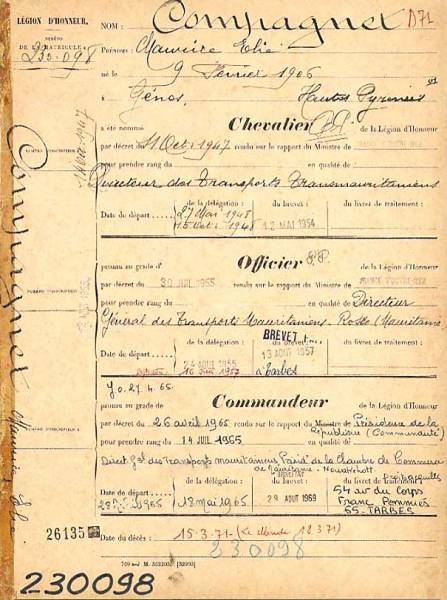 LÉGION D'HONNEUR.
NUMÉRO
DE LA MATRICULE
230.098
NOM : Compagnet D71
Prénoms : Maurice Elie
né le 9 Février 1906
à Génos. Hautes Pyrénées
a été nommé Chevalier de la Légion d'Honneur
par décret du 1 Oct. 1947 rendu sur le rapport du Ministre de
pour prendre rang du en qualité de
Directeur des Transports Transmauritaniens
de la délégation : du brevet : du livret de traitement :
Date de départ 27 Mai 1948 12 MAI 1954
15 Oct. 1948
promu au grade d' Officier de la Légion d'Honneur
par décret du 30 JUIL 1955 rendu sur le rapport du Ministre de FRANCE D'OUTRE-MER
pour prendre rang du en qualité de Directeur
Général des Transports Mauritaniens. Rosso (Mauritanie)
de la délégation : BREVET du livret de traitement :
Date de départ 24 AOUT 1955 13 AOUT 1957
16 1957 à Tarbes
J.O. 27.4.65.
promu au grade de Commandeur de la Légion d'Honneur
par décret du 26 avril 1965 rendu sur le rapport du Ministre de Présidence de la
République (Communauté)
pour prendre rang du 14 JUIL 1965 en qualité de
Direct. Gal des Transports mauritaniens Présid. de la Chambre de Commerce
de Mauritanie - Nouakchott.
de la délégation : BREVET du livret de traitement :
Date de départ 1965 18 mai 1965 29 AOUT 1969 54 av. du Corps
Franc Pommiès
65. TARBES
26135 Date du décès : 15.3.71 (Le Monde 18 3 71)
230098
Compagnet Maurice Elie
230098